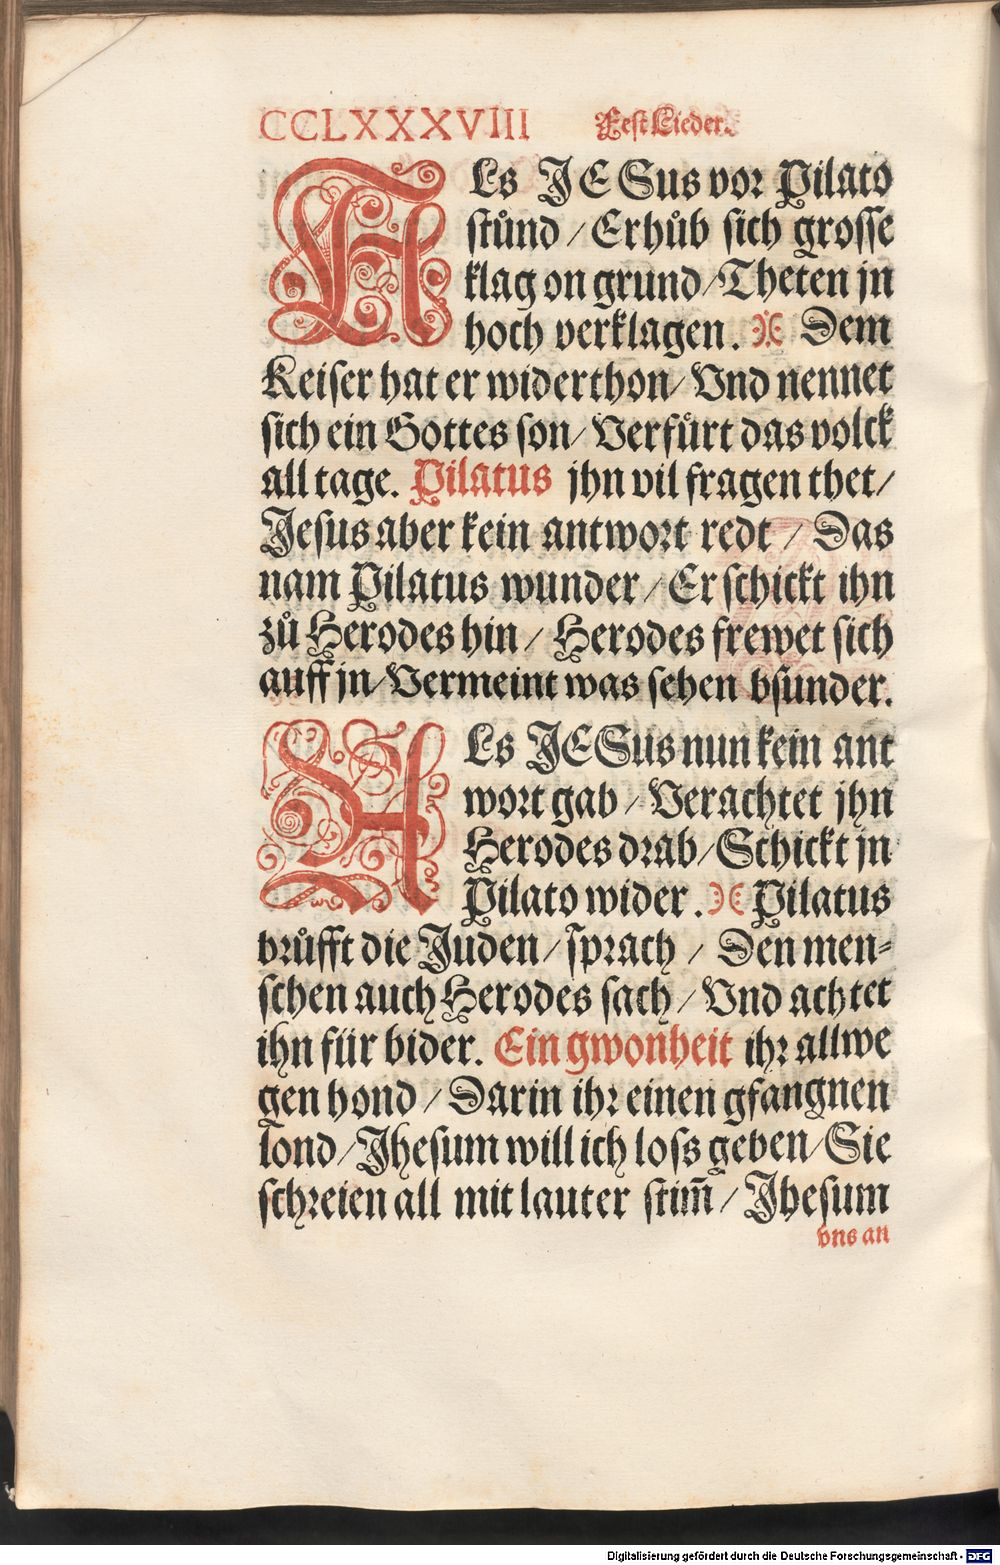 CCLXXXVIII Fest Lieder.
ALs JESus vor Pilato
stůnd / Erhůb sich grosse
klag on grund / Theten jn
hoch verklagen. Dem
Keiser hat er widerthon / Vnd nennet
sich ein Gottes son / Verfürt das volck
all tage. Pilatus jhn vil fragen thet /
Jesus aber kein antwort redt / Das
nam Pilatus wunder / Er schickt ihn
zů Herodes hin / Herodes frewet sich
auff jn / Vermeint was sehen bsunder.
ALs JESus nun kein ant
wort gab / Verachtet jhn
Herodes drab / Schickt jn
Pilato wider. Pilatus
brůfft die Juden / sprach / Den men⸗
schen auch Herodes sach / Vnd achtet
ihn für bider. Ein gwonheit ihr allwe
gen hond / Darin ihr einen gfangnen
lond / Jhesum will ich loss geben / Sie
schreien all mit lauter stim̄ / Jhesum
vns an
Digitalisierung gefördert durch die Deutsche Forschungsgemeinschaft - DFG